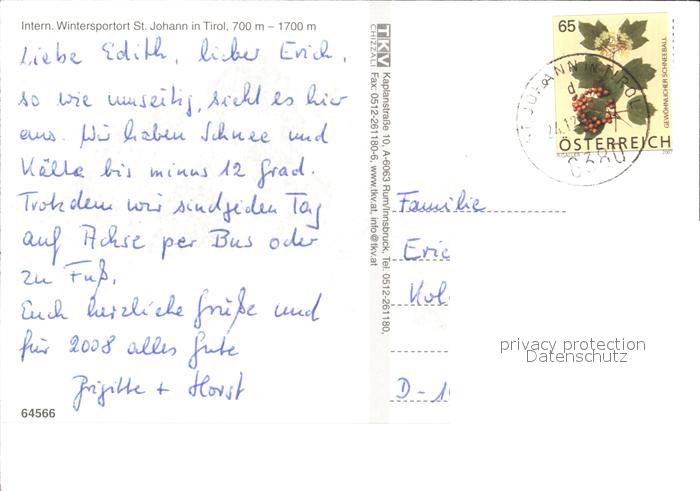 Intern. Wintersportort St. Johann in Tirol, 700 m – 1700 m
Liebe Edith, lieber Erich,
so wie umseitig, sieht es hier
aus. Wir haben Schnee und
Kälte bis minus 12 Grad.
Trotzdem wir sind jeden Tag
auf Achse per Bus oder
zu Fuß.
Euch herzliche Grüße und
für 2008 alles Gute
Brigitte + Horst
64566
TKV
CHIZZALI
Kaplanstraße 10, A-6063 Rum/Innsbruck, Tel. 0512-261180,
Fax: 0512-261180-6, www.tkv.at, info@tkv.at
65
GEWÖHNLICHER SCHNEEBALL
ÖSTERREICH
2007
ST. JOHANN IN TIROL
d
24.12
6380
Familie
Eric
Kol
D - 1
privacy protection
Datenschutz